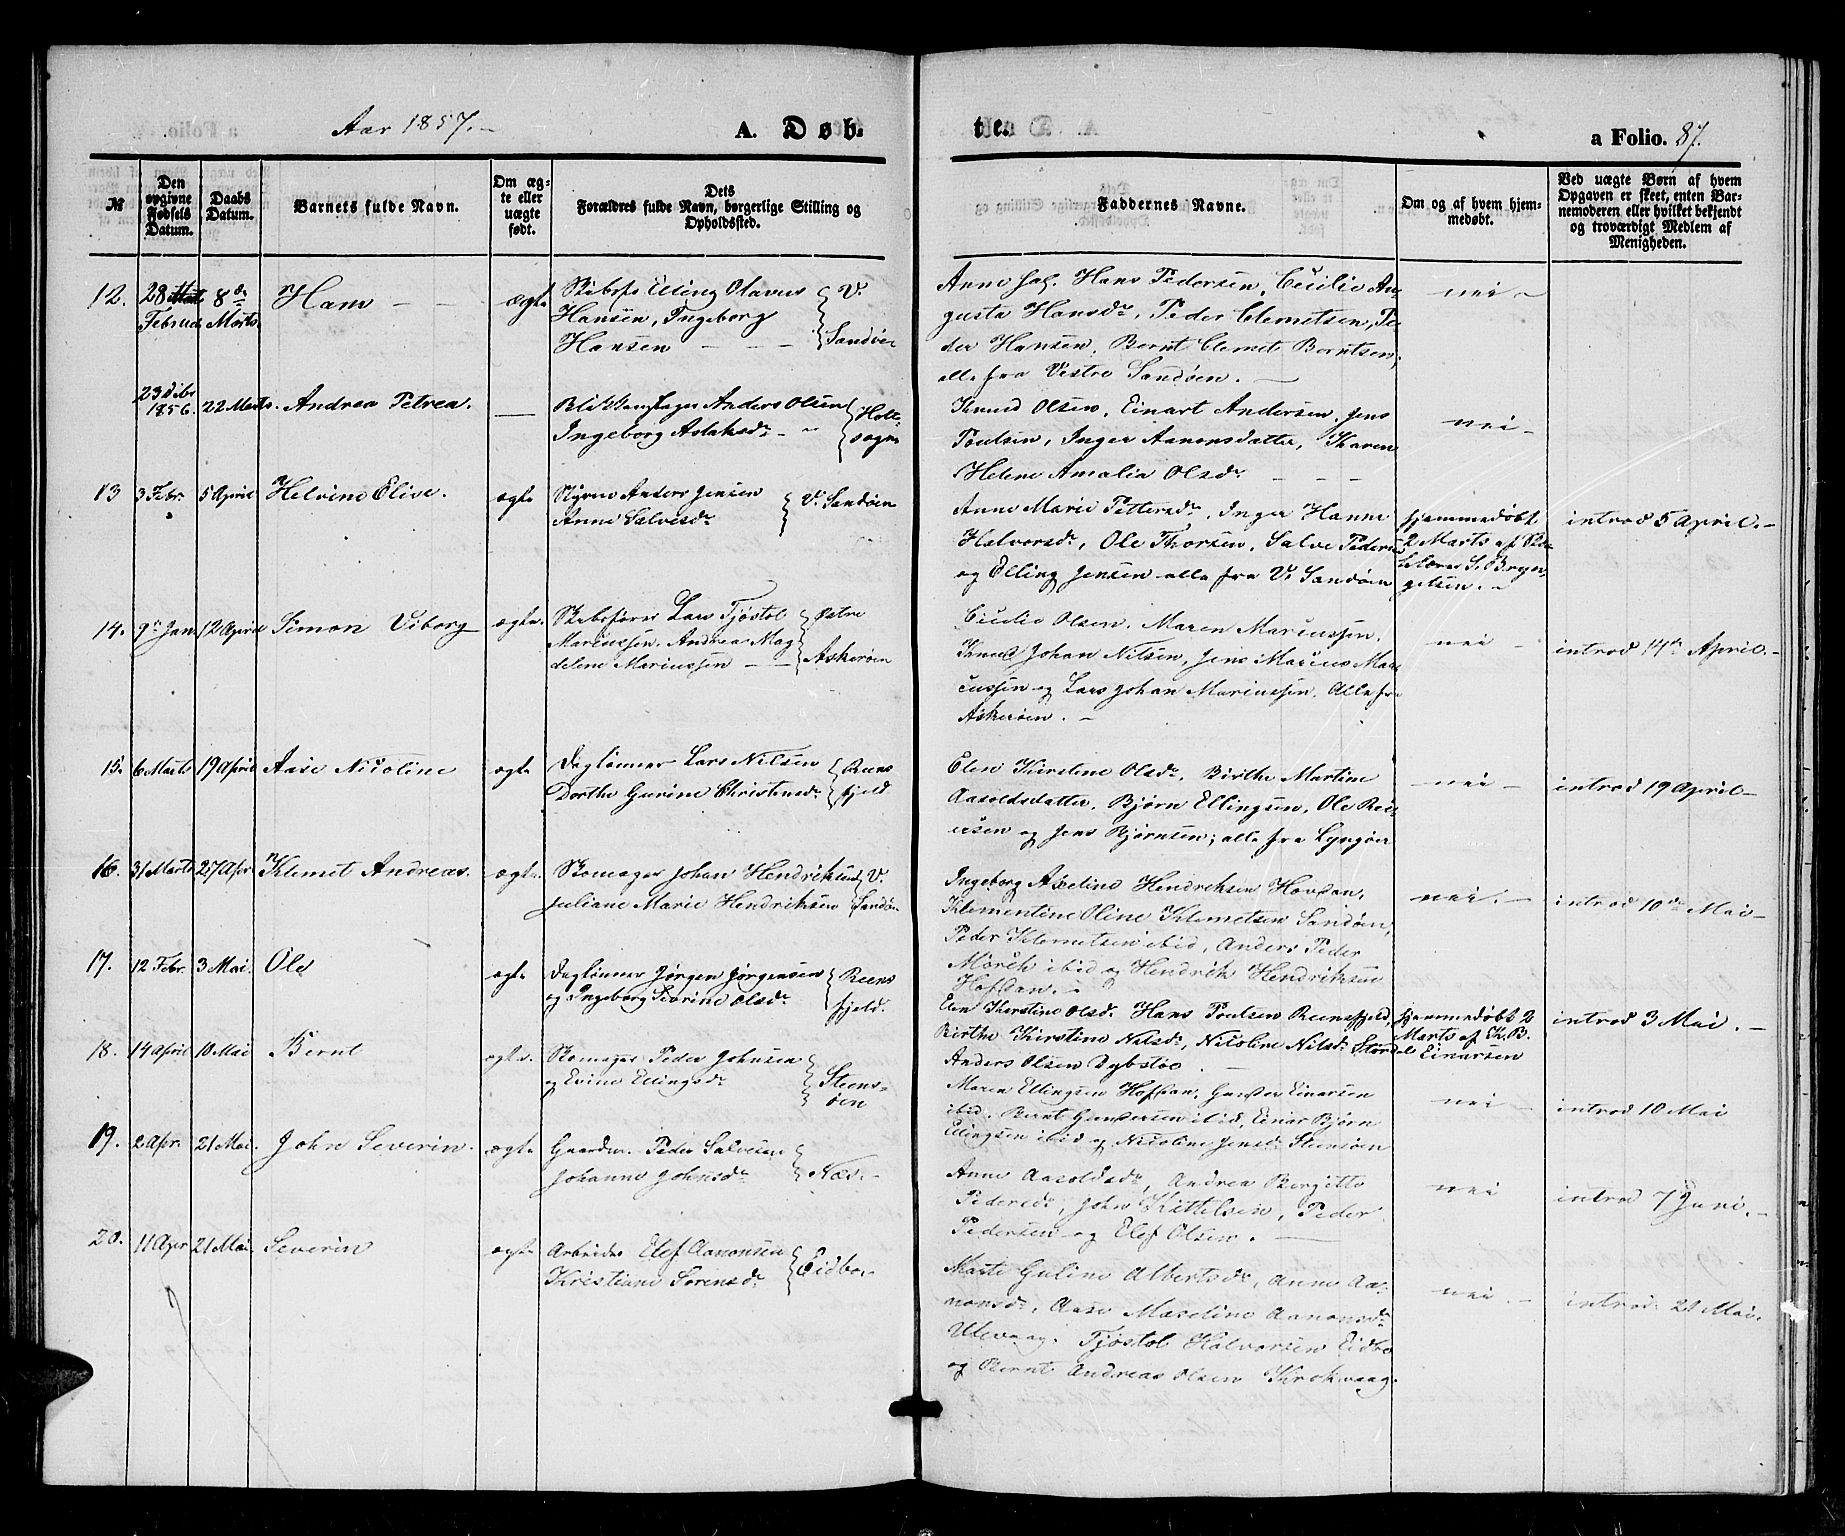 Aar 1857. -
A. Døb-
te.
a Folio. 87.
№
Den opgivne Fødsels Datum.
Daabs Datum.
Barnets fulde Navn.
Om ægte eller uægte født.
Dets Forældres fulde Navn, borgerlige Stilling og Opholdssted.
Faddernes Navne.
Om og af hvem hjemmedøbt.
Ved uægte Børn af hvem Opgaven er skeet, enten Barnemoderen eller hvilket bekjendt og troværdigt Medlem af Menigheden.
12.
28
Februar
8de
Marts
Hans
ægte
Skibsfr Elling Olavus
Hansen, Ingeborg
Hansen
V.
Sandøen
Hans Pedersen, Cecilie Au-
gusta Hansdr, Peder Clemetsen, Pe-
der Hansen, Bernt Clemet Berntsen,
alle fra Vestre Sandøen. -
nei -
23 Dcbr
1856.
22 Marts.
Andrea Petrea.
Blikkenslager Anders Olsen
Ingeborg Aslaksdr
Holt
sogn
Knud Olsen, Einart Andersen, Jens
Poulsen, Inger Aanonsdatter, Karen
Helene Amalia Olsdr
nei -
13
3 Febr.
5 April
Helvine Elive.
ægte
Styrmd Anders Jensen
Anne Salvesdr
V. Sandøen
Anne Marie Pettersdr, Inger Hanne
Halvorsdr, Ole Thorsen, Salve Pedersen
og Elling Jensen alle fra V. Sandøen
hjemmedøbt
2 Marts af Sko-
lelærer S. Bryn-
gelsen. -
introd 5 April. -
14.
9de Jan.
12 April
Simon Viborg
ægte.
Skibsfører Lars Tjøstol
Mariussen, Andrea Mag-
delene Mariussen
Østre
Askerøen
Cecilie Olsen, Maren Mariussen,
Knud Johan Nilsen, Jens Marius Mar-
cussen og Lars Johan Mariussen. Alle fra
Askerøen. -
nei -
introd 14de April. -
15.
6 Marts
19 April
Aase Nicoline
ægte
Daglønner Lars Nilsen
Dorthe Gurine Christensdr
Reens
fjeld
Elen Kirstine Olsdr, Birthe Martine
Aasoldsdatter, Bjørn Ellingsen, Ole Rei-
ersen og Jens Bjørnsen; alle fra Lyngøer
nei -
introd 19 April -
16.
31 Marts
27 Apr.
Klemet Andreas.
ægte.
Skomager Johan Hendriksen
Juliane Marie Hendriksen
V.
Sandøen
Ingeborg Axeline Hendriksen Hovdan,
Klementine Oline Klemetsen Sandøen,
Peder Klemetsen ibid, Anders Peder
Mörch ibid og Hendrik Hendriksen
Hofdan. -
nei. -
introd 10de Mai -
17.
12 Febr.
3 Mai.
Ole
ægte
Daglønner Jørgen Jørgensen
og Ingeborg Severine Olsdr
Reens
fjeld.
Elen Kirstine Olsd. Hans Poulsen Reensfjeld,
Birthe Kirstine Nilsdr, Nicoline Nilsdr Stordal
Anders Olsen Dybsloe.
hjemmedøbt 2
Marts af K. B.
Einarsen
introd 3 Mai. -
18.
14 April
10 Mai
Bernt
ægte.
Skomager Peder Johnsen
og Evine Ellingsdr
Steens-
øen
Maren Ellingsen Hofdan, Gunder Einarsen
ibid, Bernt Gundersen ibid, Einar Bjørn
Ellingsen ibid og Nicoline Jensdr Steensøen
nei -
introd 10 Mai
19.
2 Apr.
21 Mai.
John Severin.
ægte
Gaardm. Peder Salvesen
Johanne Johnsdr
Næs. -
Anne Aasoldsdr, Andrea Birgitte
Pedersdr, John Kittelsen, Peder
Pedersen og Elef Olsen.
nei
introd 7 Juni. -
20.
11 Apr
21 Mai.
Severin
ægte
Arbeider Elef Aanonsen
Kristiane Sørensdr
Eidbo.
Marte Guline Albertsdr, Anne Aa-
nonsdr, Aase Maseline Aanonsdr
Ulevaag. Tjøstol Halvorsen Eidbo
og Bernt Andreas Olsen Krokvaag.
nei. -
introd. 21 Mai.